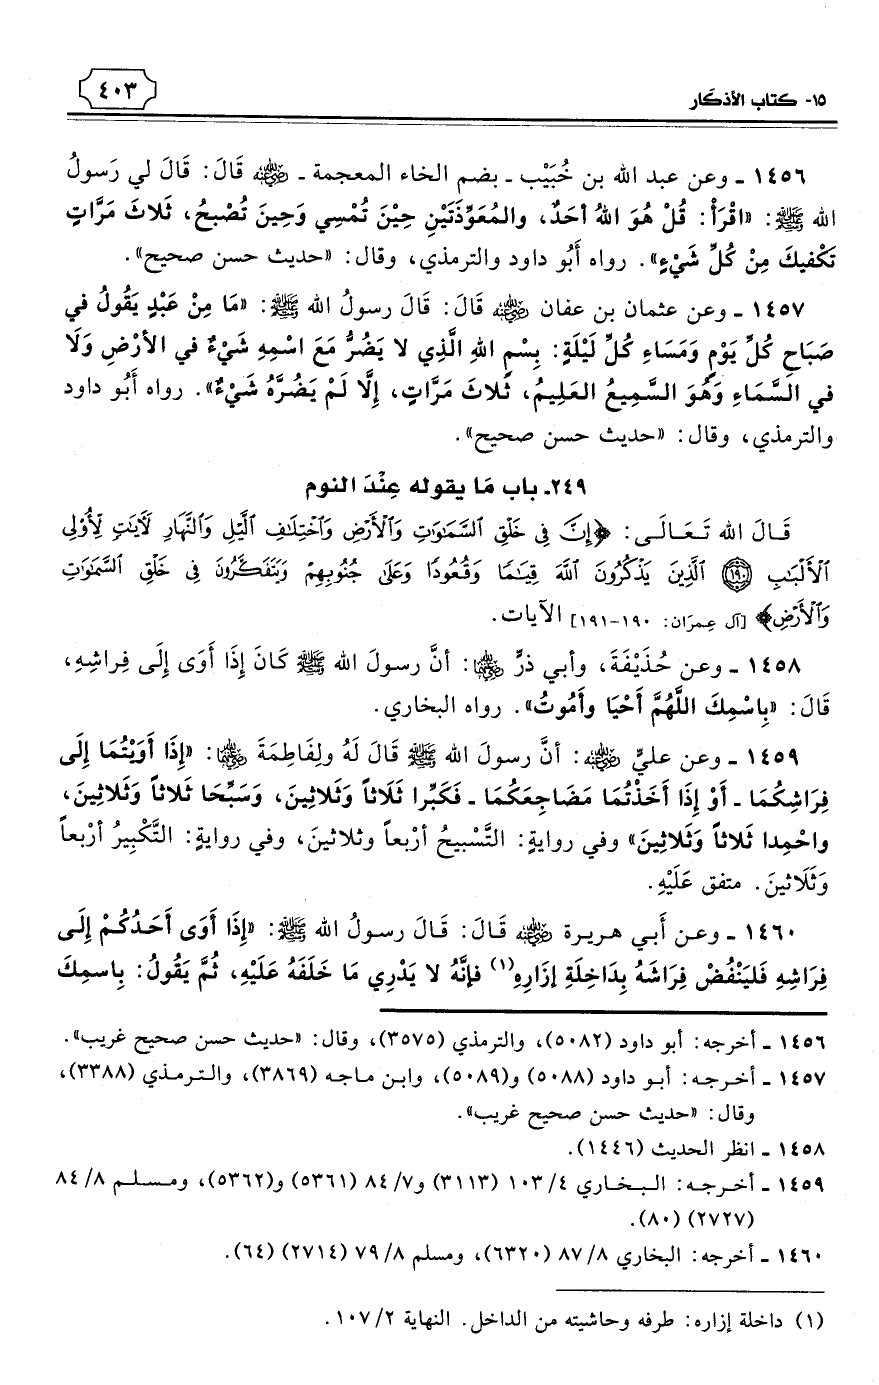 ١٥- كتاب الأذكار
٤٠٣
١٤٥٦ ـ وعن عبد الله بن خُبَيْب ـ بضم الخاء المعجمة ـ ﵁ قَالَ: قَالَ لي رَسولُ
الله ﷺ: «اقْرَأْ: قُلْ هُوَ اللهُ أحَدٌ، والمُعَوِّذَتَيْنِ حِيْنَ تُمْسِي وَحِينَ تُصْبحُ، ثَلاثَ مَرَّاتٍ
تَكْفيكَ مِنْ كُلِّ شَيْءٍ». رواه أَبُو داود والترمذي، وقال: «حديث حسن صحيح».
١٤٥٧ ـ وعن عثمان بن عفان ﵁ قَالَ: قَالَ رسولُ الله ﷺ: «مَا مِنْ عَبْدٍ يَقُولُ في
صَبَاحِ كُلِّ يَوْمٍ وَمَسَاءِ كُلِّ لَيْلَةٍ: بِسْمِ اللهِ الَّذِي لا يَضُرُّ مَعَ اسْمِهِ شَيْءٌ في الأرْضِ وَلَا
في السَّمَاءِ وَهُوَ السَّمِيعُ العَلِيمُ، ثَلاثَ مَرَّاتٍ، إِلَّا لَمْ يَضُرَّهُ شَيْءٌ». رواه أَبُو داود
والترمذي، وقال: «حديث حسن صحيح».
٢٤٩- باب مَا يقوله عِنْدَ النوم
قَالَ الله تَعَالَى: ﴿إِنَّ فِي خَلْقِ ٱلسَّمَٰوَٰتِ وَٱلْأَرْضِ وَٱخْتِلَٰفِ ٱلَّيْلِ وَٱلنَّهَارِ لَءَايَٰتٍ لِّأُوْلِي
ٱلْأَلْبَٰبِ ١٩٠ ٱلَّذِينَ يَذْكُرُونَ ٱللَّهَ قِيَٰمًا وَقُعُودًا وَعَلَىٰ جُنُوبِهِمْ وَيَتَفَكَّرُونَ فِي خَلْقِ ٱلسَّمَٰوَٰتِ
وَٱلْأَرْضِ﴾ [آل عِمرَان: ١٩٠-١٩١] الآيات.
١٤٥٨ ـ وعن حُذَيْفَةَ، وأبي ذرٍّ ﵄: أنَّ رسولَ الله ﷺ كَانَ إِذَا أوَى إِلَى فِراشِهِ،
قَالَ: «بِاسْمِكَ اللَّهُمَّ أَحْيَا وأَمُوتُ». رواه البخاري.
١٤٥٩ ـ وعن عليٍّ ﵁: أنَّ رسولَ الله ﷺ قَالَ لَهُ ولِفَاطِمَةَ ﵄: «إِذَا أَوَيْتُمَا إِلَى
فِرَاشِكُمَا ـ أَوْ إِذَا أَخَذْتُمَا مَضَاجِعَكُمَا ـ فَكَبِّرا ثَلَاثاً وَثَلَاثِينَ، وَسَبِّحَا ثَلاثاً وَثَلاثِينَ،
واحْمِدا ثَلاثاً وَثَلَاثِينَ» وفي روايةٍ: التَّسْبيحُ أرْبعاً وثلاثينَ، وفي روايةٍ: التَّكْبِيرُ أرْبعاً
وَثَلَاثينَ. متفق عَلَيْهِ.
١٤٦٠ ـ وعن أَبي هريرة ﵁ قَالَ: قَالَ رسولُ الله ﷺ: «إِذَا أَوَى أَحَدُكُمْ إِلَى
فِرَاشِهِ فَليَنْفُضْ فِرَاشَهُ بِدَاخِلَةِ إزَارِهِ(١) فإنَّهُ لا يَدْرِي مَا خَلَفَهُ عَلَيْهِ، ثُمَّ يَقُولُ: بِاسمِكَ
١٤٥٦ ـ أخرجه: أبو داود (٥٠٨٢)، والترمذي (٣٥٧٥)، وقال: «حديث حسن صحيح غريب».
١٤٥٧ ـ أخرجه: أبو داود (٥٠٨٨) و(٥٠٨٩)، وابن ماجه (٣٨٦٩)، والترمذي (٣٣٨٨)،
وقال: «حديث حسن صحيح غريب».
١٤٥٨ ـ انظر الحديث (١٤٤٦).
١٤٥٩ ـ أخرجه: البخاري ٤/ ١٠٣ (٣١١٣) و٧/ ٨٤ (٥٣٦١) و(٥٣٦٢)، ومسلم ٨/ ٨٤
(٢٧٢٧) (٨٠).
١٤٦٠ ـ أخرجه: البخاري ٨/ ٨٧ (٦٣٢٠)، ومسلم ٨/ ٧٩ (٢٧١٤) (٦٤).
(١) داخلة إزاره: طرفه وحاشيته من الداخل. النهاية ٢/ ١٠٧.